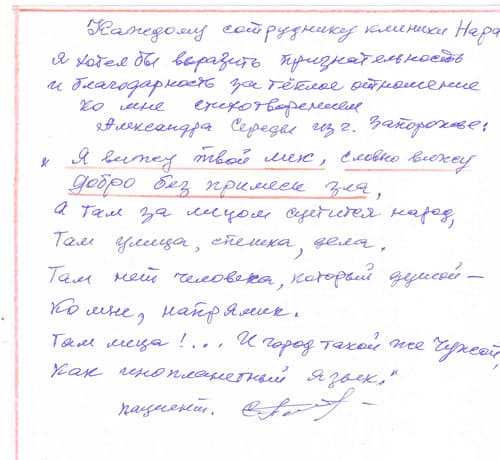 Каждому сотруднику клиники Нара
я хотел бы выразить признательность
и благодарность за тёплое отношение
ко мне стихотворением
Александра Середы из г. Запорожье:
„Я вижу твой лик, словно вижу
добро без примеси зла,
А там за лицом суетится народ,
Там улица, спешка, дела.
Там нет человека, который душой —
Ко мне, напрямик.
Там лица!... И город такой же чужой,
Как инопланетный язык."
пациент.